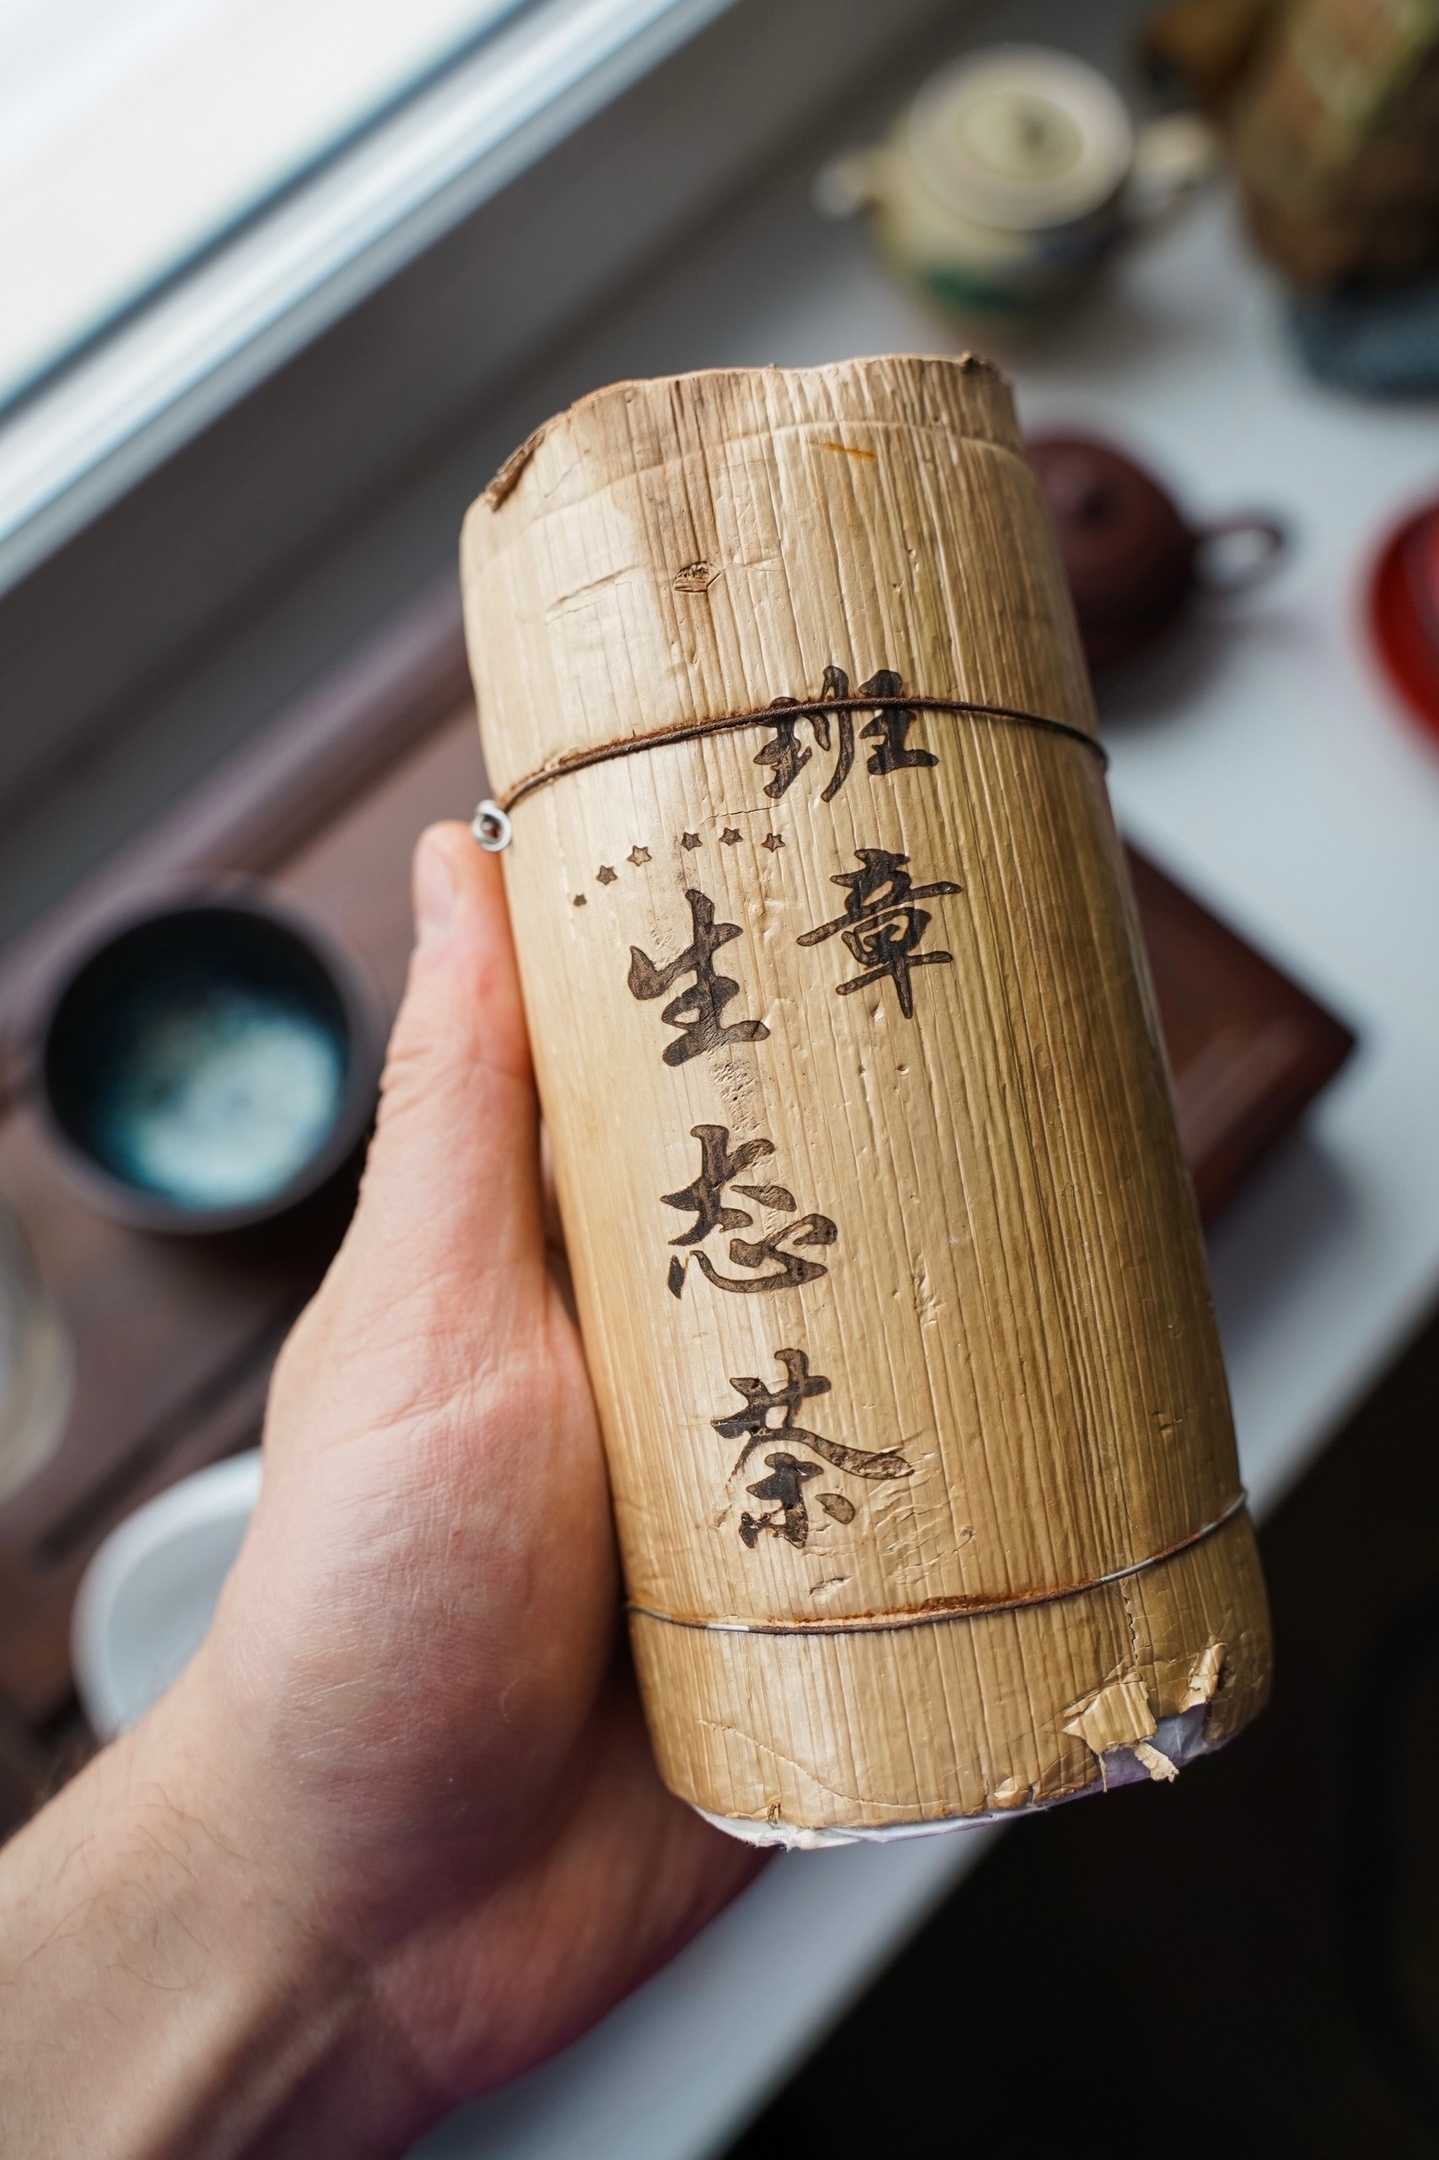 班章
生态茶